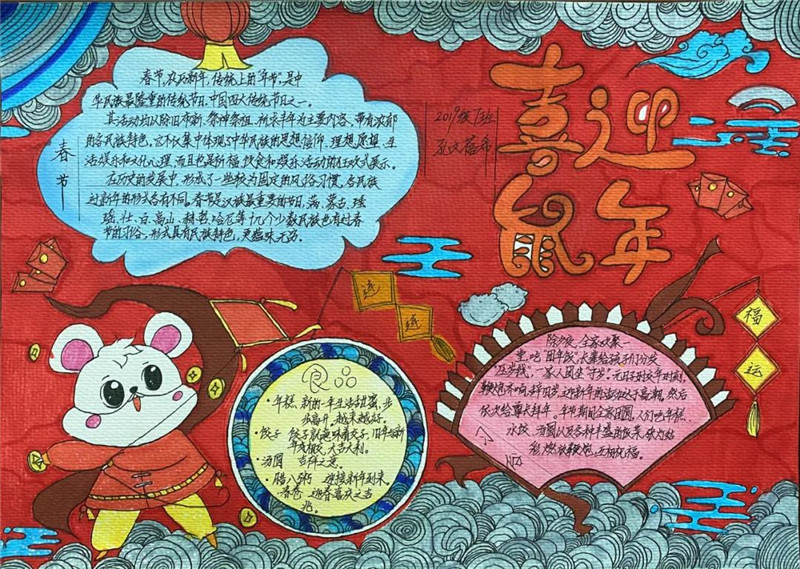 喜迎
鼠年
2019级7班
春节
春节,农历新年,传统上的“年节”,是中
华民族最隆重的传统节日,中国四大传统节日之一。
其活动均以除旧布新、祭神祭祖、祈求丰年为主要内容,带有浓郁
的各民族特色。它不仅集中体现了中华民族的思想信仰、理想愿望、生
活娱乐和文化心理,而且也是祈福、饮食和娱乐活动的狂欢式展示。
在历史的发展中,形成了一些较为固定的风俗习惯,各民族
过新年的形式各有不同。春节是汉族最重要的节日,满、蒙古、瑶
壮、白、高山、赫哲、哈尼等十几个少数民族也有过春
节的习俗,形式具有民族特色,更蕴味无穷。
食品
·年糕 新的一年生活甜蜜,步
步高升,越来越好。
·饺子 饺子就意味着交子,旧年与新
年相交,大吉大利。
·汤圆 吉祥之意。
·腊八粥 迎接新年到来。
·春卷 迎春喜庆之吉
兆。
除夕夜,全家欢聚一
堂,吃“团年饭”,长辈给孩子们分发
“压岁钱”,一家人团坐“守岁”。元日子时交年时刻,
鞭炮齐响,辞旧岁、迎新年的活动达于高潮,然后
依次给尊长拜年。年节期间全家团圆,人们吃年糕、
水饺、汤圆以及各种丰盛的饭菜,
燃放鞭炮,互相祝福。
福
运